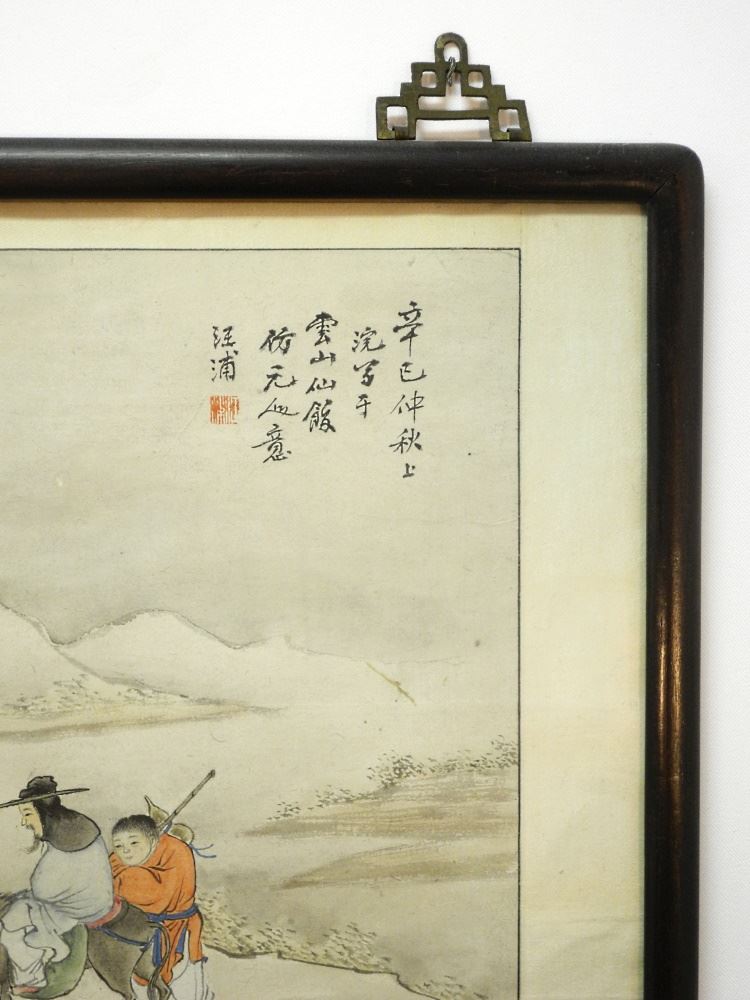 辛巳仲秋上
浣写于
雲山仙館
仿元人意
汪浦